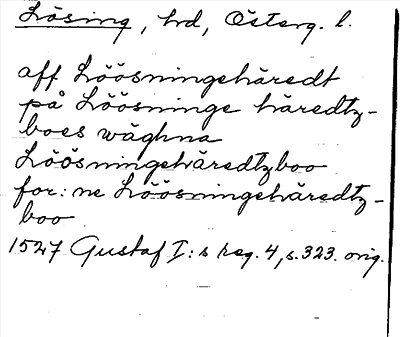 Lösing, hd, Österg. l.
aff Löösningehäredt
på Löösninge häredtz-
boes wäghna
Löösningehäredtzboo
for: ne Löösningehäredtz-
boo
1527 Gustaf I: s reg. 4, s. 323. orig.